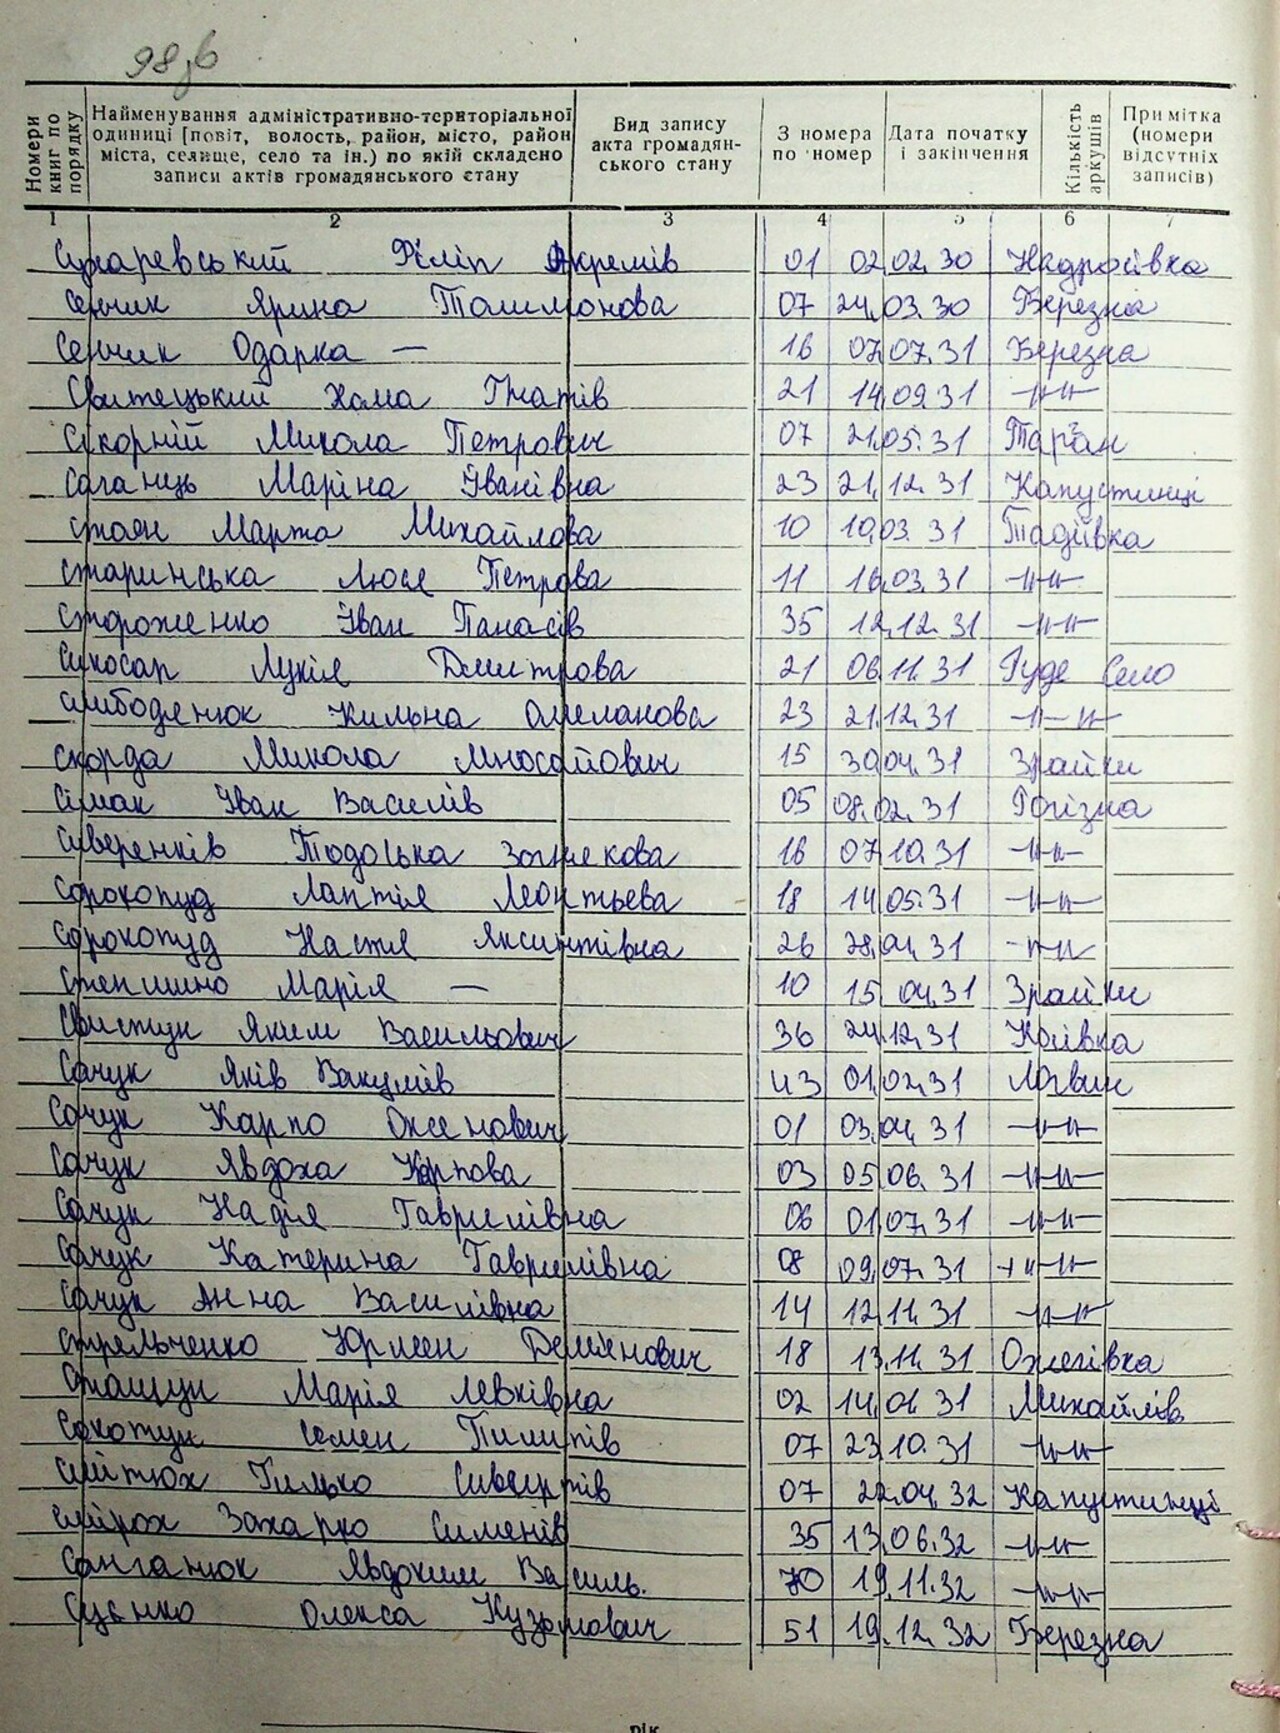 98 зв
Номери книг по порядку
Найменування адміністративно-територіальної одиниці [повіт, волость, район, місто, район міста, селище, село та ін.) по якій складено записи актів громадянського стану
Вид запису акта громадянського стану
З номера по номер
Дата початку і закінчення
Кількість аркушів
Примітка (номери відсутніх записів)
1 2 3 4 5 6 7
Сухаревський Філіп 01 02.02.30
Сенчик Ярина 07 24.03.30 Березна
Сенчик Одарка — 16 07.07.31 Березна
Свитецький Хома Гнатів 21 14.09.31 -//-
Сікорній Микола Петрович 07 21.05.31 Таран
Саганець Маріна Іванівна 23 21.12.31 Капустинці
Стоян Марта Михайлова 10 10.03.31 Тадіївка
Старинська Люся Петрова 11 16.03.31 -//-
Стороженко Іван Панасів 35 12.12.31 -//-
Сикосар Лукія Дмитрова 21 06.11.31 Руде Село
Килина Омелянова 23 21.12.31 -//-
Скорда Микола 15 30.04.31 Зрайки
Сімак Іван Василів 05 08.02.31 Рогізна
Сиверенків Тодоська 16 07.10.31 -//-
Сорокопуд Леонтьева 18 14.05.31 -//-
Сорокопуд Настя 26 28.04.31 -//-
Марія — 10 15.04.31 Зрайки
Свистун Яким Васильович 36 24.12.31
Сачук Яків Вакулів 43 01.02.31 Логвин
Сачук Карпо 01 03.04.31 -//-
Сачук Явдоха Карпова 03 05.06.31 -//-
Сачук Надія Гаврилівна 06 01.07.31 -//-
Сачук Катерина Гаврилівна 08 09.07.31 -//-
Сачук Анна Василівна 14 12.11.31 -//-
Стрельченко Демянович 18 13.11.31 Ожегівка
Марія Левківна 02 14.01.31 Михайлів
Сокотун Семен Пилипів 07 23.10.31 -//-
Гилько 07 22.04.32 Капустинці
Захарко Сименів 35 13.06.32 -//-
Явдоким Василь. 70 19.11.32 -//-
Олекса Кузьмович 51 19.12.32 Березна
рік